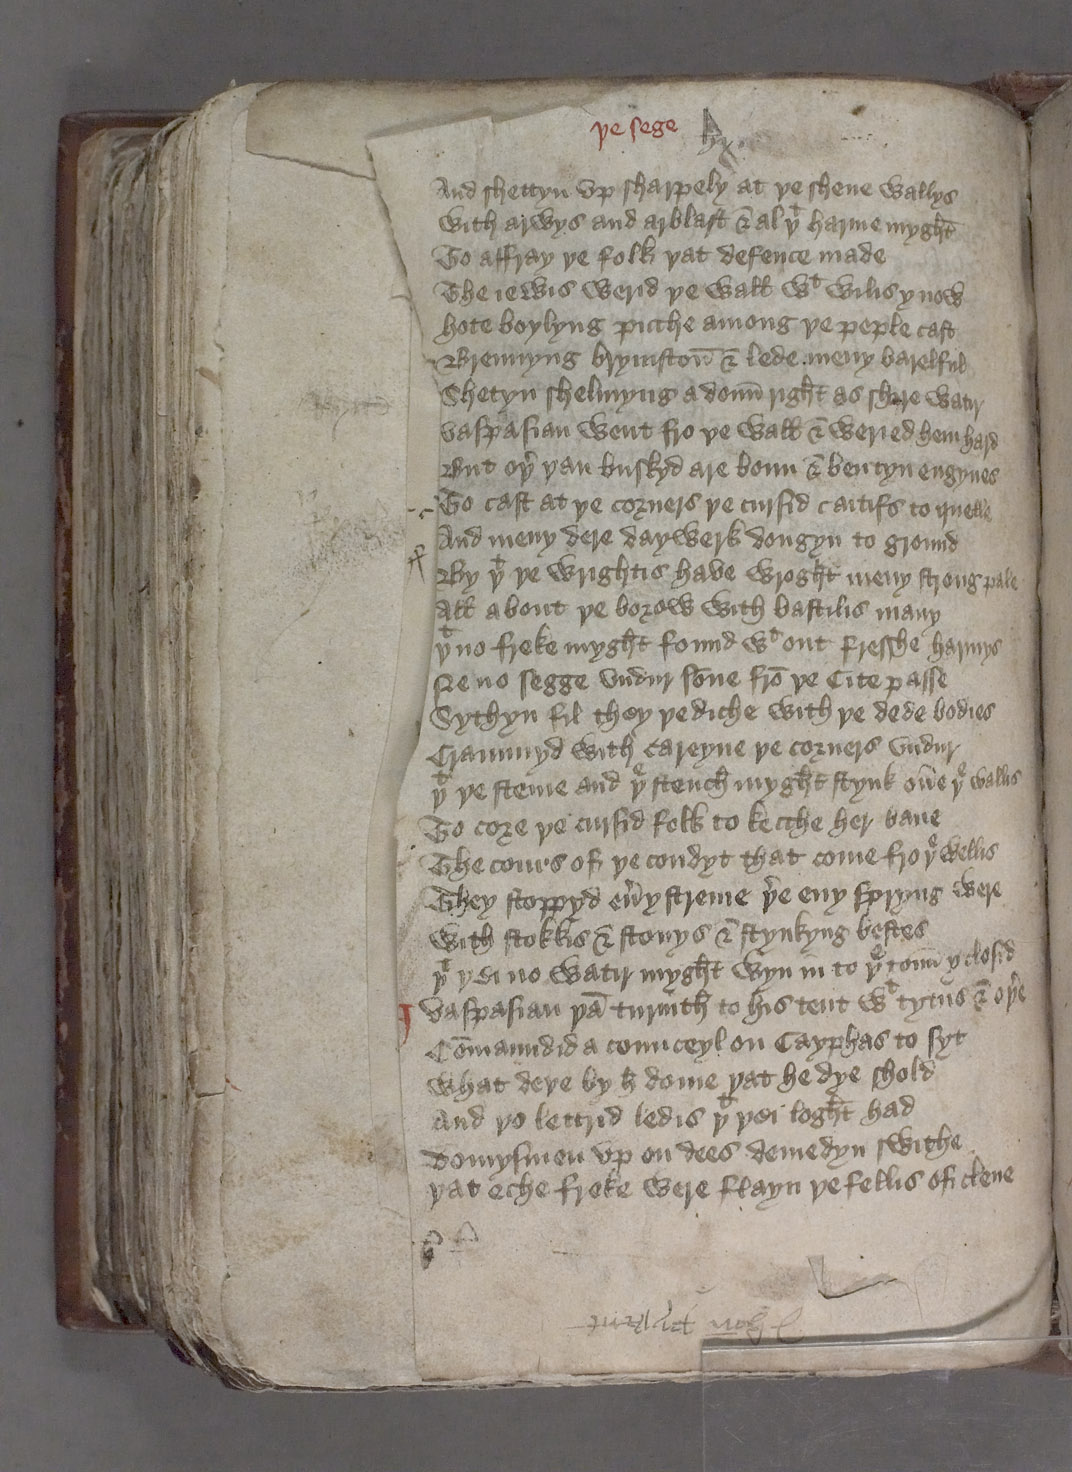 þe sege
And shettyn vp sharpely at þe shene wallys
With arwys and arblast & al þt harme myght
To affray þe folk þat defence made
The iewis werid þe wall wt wilis ynow
hote boylyng picche among þe peple cast
Brennyng brymstoū & lede meny barelful
Shetyn shelmyng a doun right as shyre watir
vaspasian went fro þe wall & weried hem hard
But oþr þan buskyd are boun & bentyn engynes
To cast at þe corners þe cursid caitifs to quelle
And meny dere daywerk dongyn to ground
By þt þe wrightis have wroght meny strong pale
All about þe borow with bastilis many
þt no freke myght found wt out fresshe harmys
Ne no segge vndur sōne frō þe Cite passe
Sythyn fil they þe diche with þe dede bodies
Crammyd with careyne þe corners vndur
þt þe steme and þe stench myght stynk ouͬe þe wallis
To core þe cursid folk to kecche her bane
The cours of þe condyt that come fro þe wellis
They stoppyd eūy streme þre eny spryng were
With stokkis & stonys & stynkyng bestes
þt þei no watir myght wyn in to þe toun yclosid
vaspasian þā turnith to his tent wt tytus & oþre
Cōmaundid a counceyl on Cayphas to syt
What deþe by h dome þat he dye shold
And þo lettrid ledis þt þei loght had
Domysmen vp on dees demedyn swithe
þat eche freke were flayn þe fellis of clene